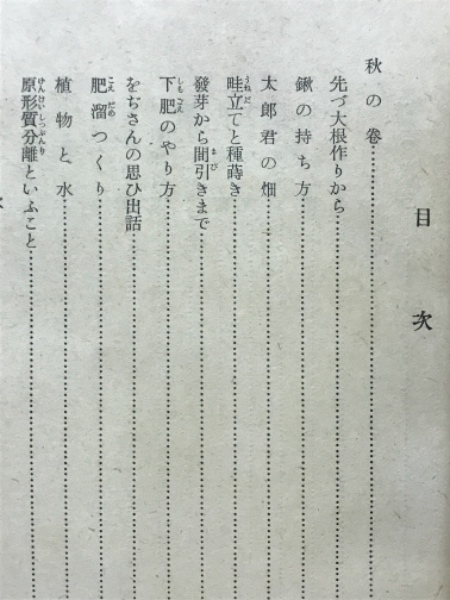 目次
秋の巻
先づ大根作りから
鍬の持ち方
太郎君の畑
畦立てと種蒔き
發芽から間引きまで
下肥のやり方
をぢさんの思ひ出話
肥溜つくり
植物と水
原形質分離といふこと